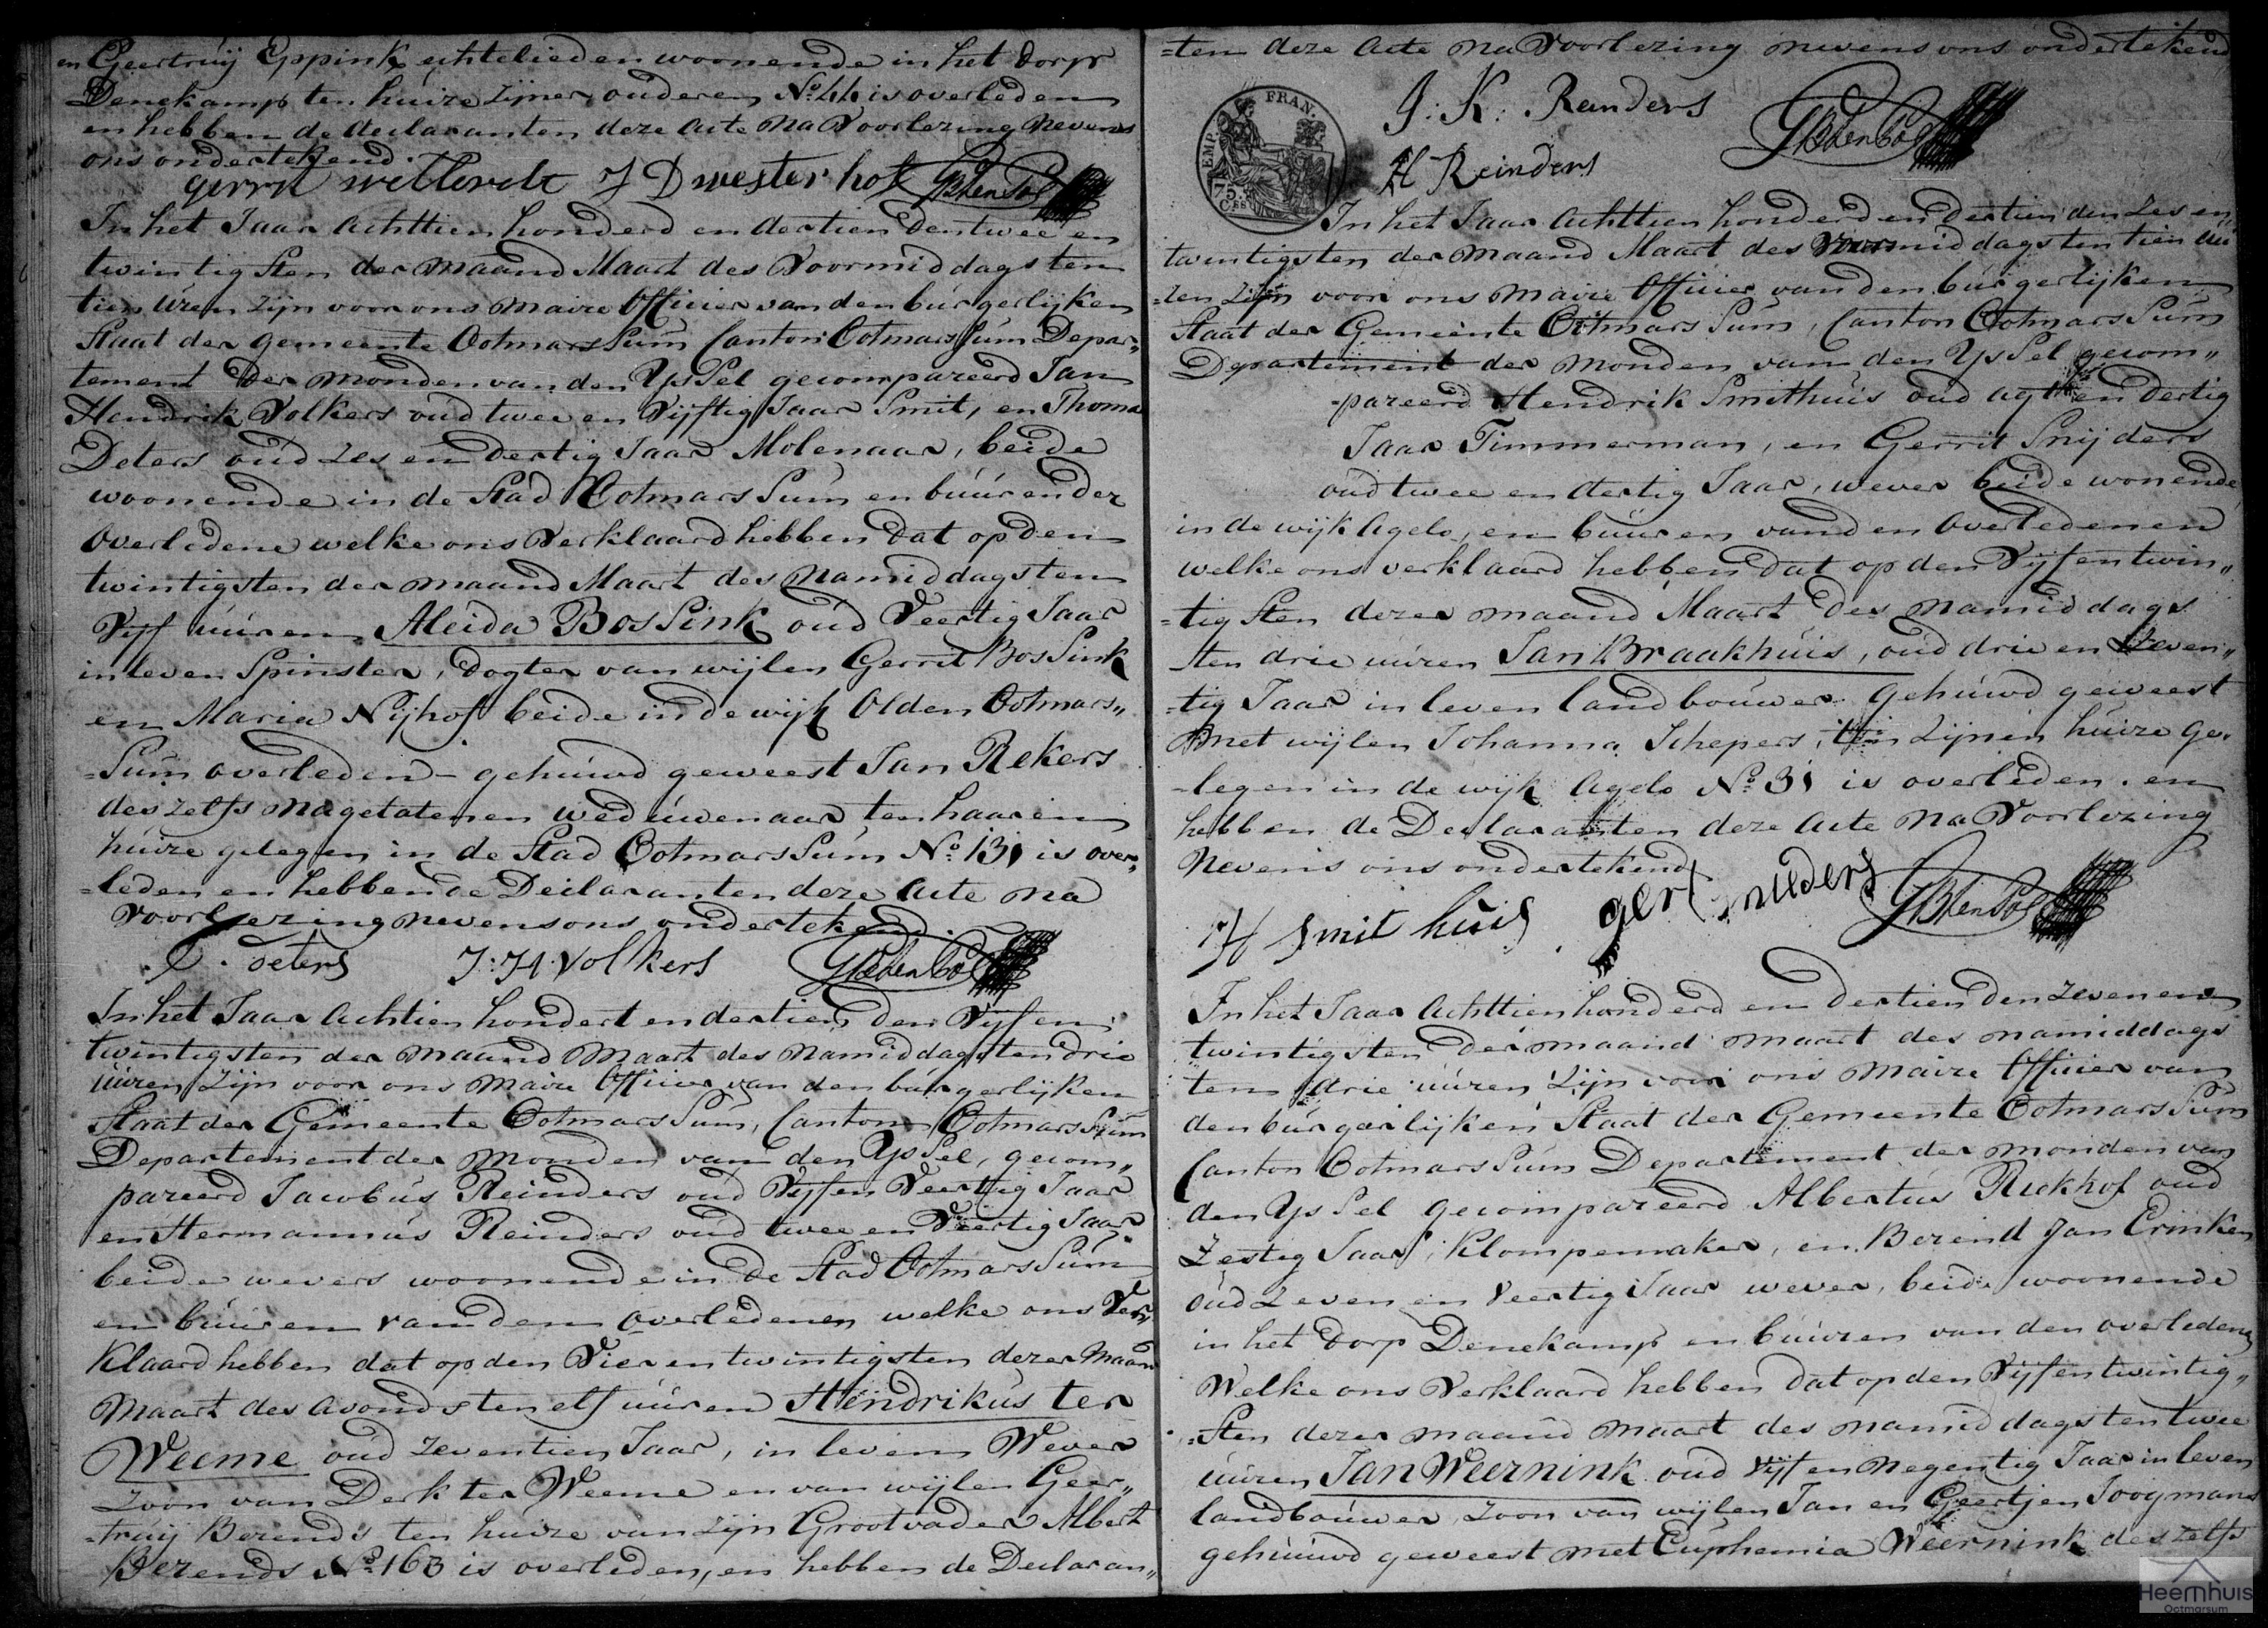 en Geertruij Eppink echtelieden woonende in het dorp
Denekamp ten huize zijner ouderen No. 44 is overleden
en hebben de declaranten deze Acte na Voorlezing nevens
ons ondertekend.
gerrit J D westerhof
In het Jaar Achttien honderd en dertien den twee en
twintigsten der maand Maart des Voormiddags ten
tien uren zijn voor ons Maire Officier van den burgerlijken
Staat der gemeente OotmarsSum Canton OotmarsSum Depar„
tement der monden van den YsSel gecompareerd Jan
Hendrik Volkers oud twee en Vijftig Jaar Smit, en Thoma
Deters oud zes en dertig Jaar Molenaar, beide
woonende in de Stad OotmarsSum en buuren der
Overledene welke ons Verklaard hebben dat op den
twintigsten der maand Maart des Namiddags ten
Vijf uuren Aleida BosSink oud Veertig Jaar
in leven Spinster, dogter van wijlen Gerrit BosSink
en Maria Nijhof beide in de wijk Olden Ootmars„
=Sum overleden - gehuwd geweest Jan Rekers
deszelfs nagelatenen weduwenaar ten haaren
huize gelegen in de Stad OotmarsSum No. 131 is over„
=leden en hebben de Declaranten deze Acte na
voorlezing nevens ons ondertekend.
Deters J: H. Volkers
In het Jaar Achtien hondert en dertien den Vijf en
twintigsten der maand Maart des Namiddags ten drie
uuren zijn voor ons Maire Officier van den burgerlijken
Staat der Gemeente OotmarsSum, Canton OotmarsSum
Departement der Monden van den YsSel, gecom„
pareerd Jacobus Reinders oud Vijf en Veertig Jaar
en Hermannus Reinders oud twee en Veertig Jaar
beide wevers woonende in de Stad OotmarsSum
en buuren van den overledenen welke ons Ver„
Klaard hebben dat op den Vier en twintigsten dezer Maand
Maart des Avonds ten elf uuren Hendrikus ter
Weeme oud zeventien Jaar, in leven Wever
zoon van Derk ter Weeme en van wijlen Geer„
=truij Berends ten huize van zijn Grootvader Albert
Berends No. 163 is overleden, en hebben de Declaran„
=ten deze Acte na Voorlezing nevens ons ondertekend
EMP. FRAN.
75
CES
J: K: Randers
H Reinders
In het Jaar Achttien honderd en dertien den zes en
twintigsten der Maand Maart des Voormiddags ten tien uu
=ren zijn voor ons Maire Officier van den burgerlijken
Staat der Gemeente OotmarsSum, Canton OotmarsSum
Departement der Monden van den YsSel gecom„
=pareerd Hendrik Smithuis oud agt en dertig
Jaar Timmerman, en Gerrit Snijders
oud twee en dertig Jaar, wever beide wonende
in de wijk Agelo, en buuren van den Overledenen
welke ons verklaard hebben dat op den Vijf en twin„
=tigsten dezer maand Maart des namiddags
ten drie uuren Jan Braakhuis, oud drie en zeven„
=tig Jaar in leven landbouwer gehuwd geweest
met wijlen Johanna Schepers, in zijnen huize ge„
=legen in de wijk Agelo No. 31 is overleden. en
hebben de Declaranten deze Acte na Voorlezing
Nevens ons ondertekend
H Smit huis gert
In het Jaar Achttien honderd en dertien den zeven en
twintigsten der maand Maart des namiddags
ten drie uuren zijn voor ons Maire Officier van
den burgerlijken Staat der Gemeente OotmarsSum
Canton OotmarsSum Departement der monden van
den YsSel gecompareerd Albertus Rickhof oud
Zestig Jaar, Klompenmaker, en Berend Jan Erinken
oud zeven en Veertig Jaar wever, beide woonende
in het Dorp Denekamp en buuren van den overledenen
Welke ons Verklaard hebben dat op den Vijf en twintig„
=sten dezer maand Maart des namiddags ten twee
uuren Jan Weernink oud vijf en Negentig Jaar in leven
landbouwer, zoon van wijlen Jan en Geertjen Joogmans
gehuuwd geweest met Euphemia Weernink deszelfs
Heemhuis
Ootmarsum